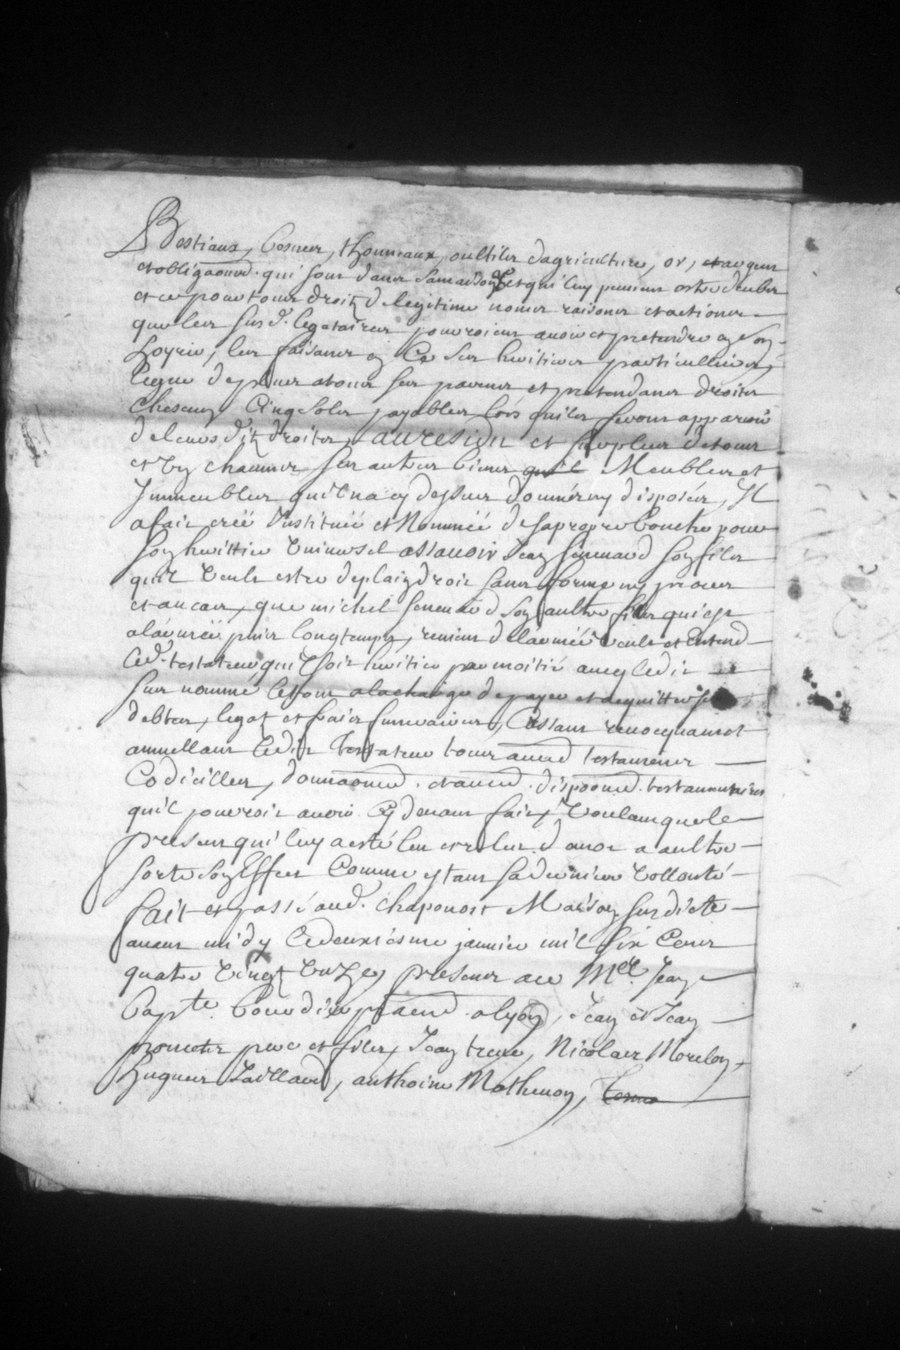 Bestiaux, bosneur, thonneaux, oultilz dagriculture, or, et argent
et obliga[ti]ons qui sont dans sa maison et qui luy peuvent estre deubes
et ce pour tous droitz de legitime nomer raisons et actions
que leur susd. legataires pouvroient avoir et pretendre en son
hoyrie, leur faisans en ce ses heritiers particulliers,
legue de plus atous ses parens et pretendans droitz
chescun cinq solz payables lors quilz seront apparoir
deleursditz droitz, auresidu et surplus detous
et un chascuns ses autres biens Meubles et
Immeubles quil na cy dessus donnés ny disposés, Il
a fait creé Institué et Nommé desapropre bouche pour
son heritier universel assavoir Jean seneaud son filz
quil veult estre deplain droit sans forme ny proces
et au cas, que michel seneaud son aultre filz qui est
a larmée puis longtemps, revient de larmée veult et Entend
led. testateur quil soit heritier par moitié avecq ledit
sus nommé le tout alacharge de payer et acquitter ses
debtes, legatz et frais funeraires, Cassant revocquant et
annullant ledit testateur tous aud. testaments
Codicilles, donna[ti]ons et aud. dispo[siti]ons testamentaires
quil pouvroit avoir cy devant faitz Voulant que le
present qui luy a esté leu et releu d'une a aultre
sorte son Effect Comme estant sa derniere vollonté
fait et passé aud. chaponost Maison susdicte
avant midy le deuxiesme janvier mil six Cens
quatre vingt unze, presents a ce Mre. Jean
bapte. bourdin prat[icie]n a lyon, Jean et Jean
pere et filz, Jean treve, Nicolas Morelon,
hugues Gaillard, anthoine Mathenon,